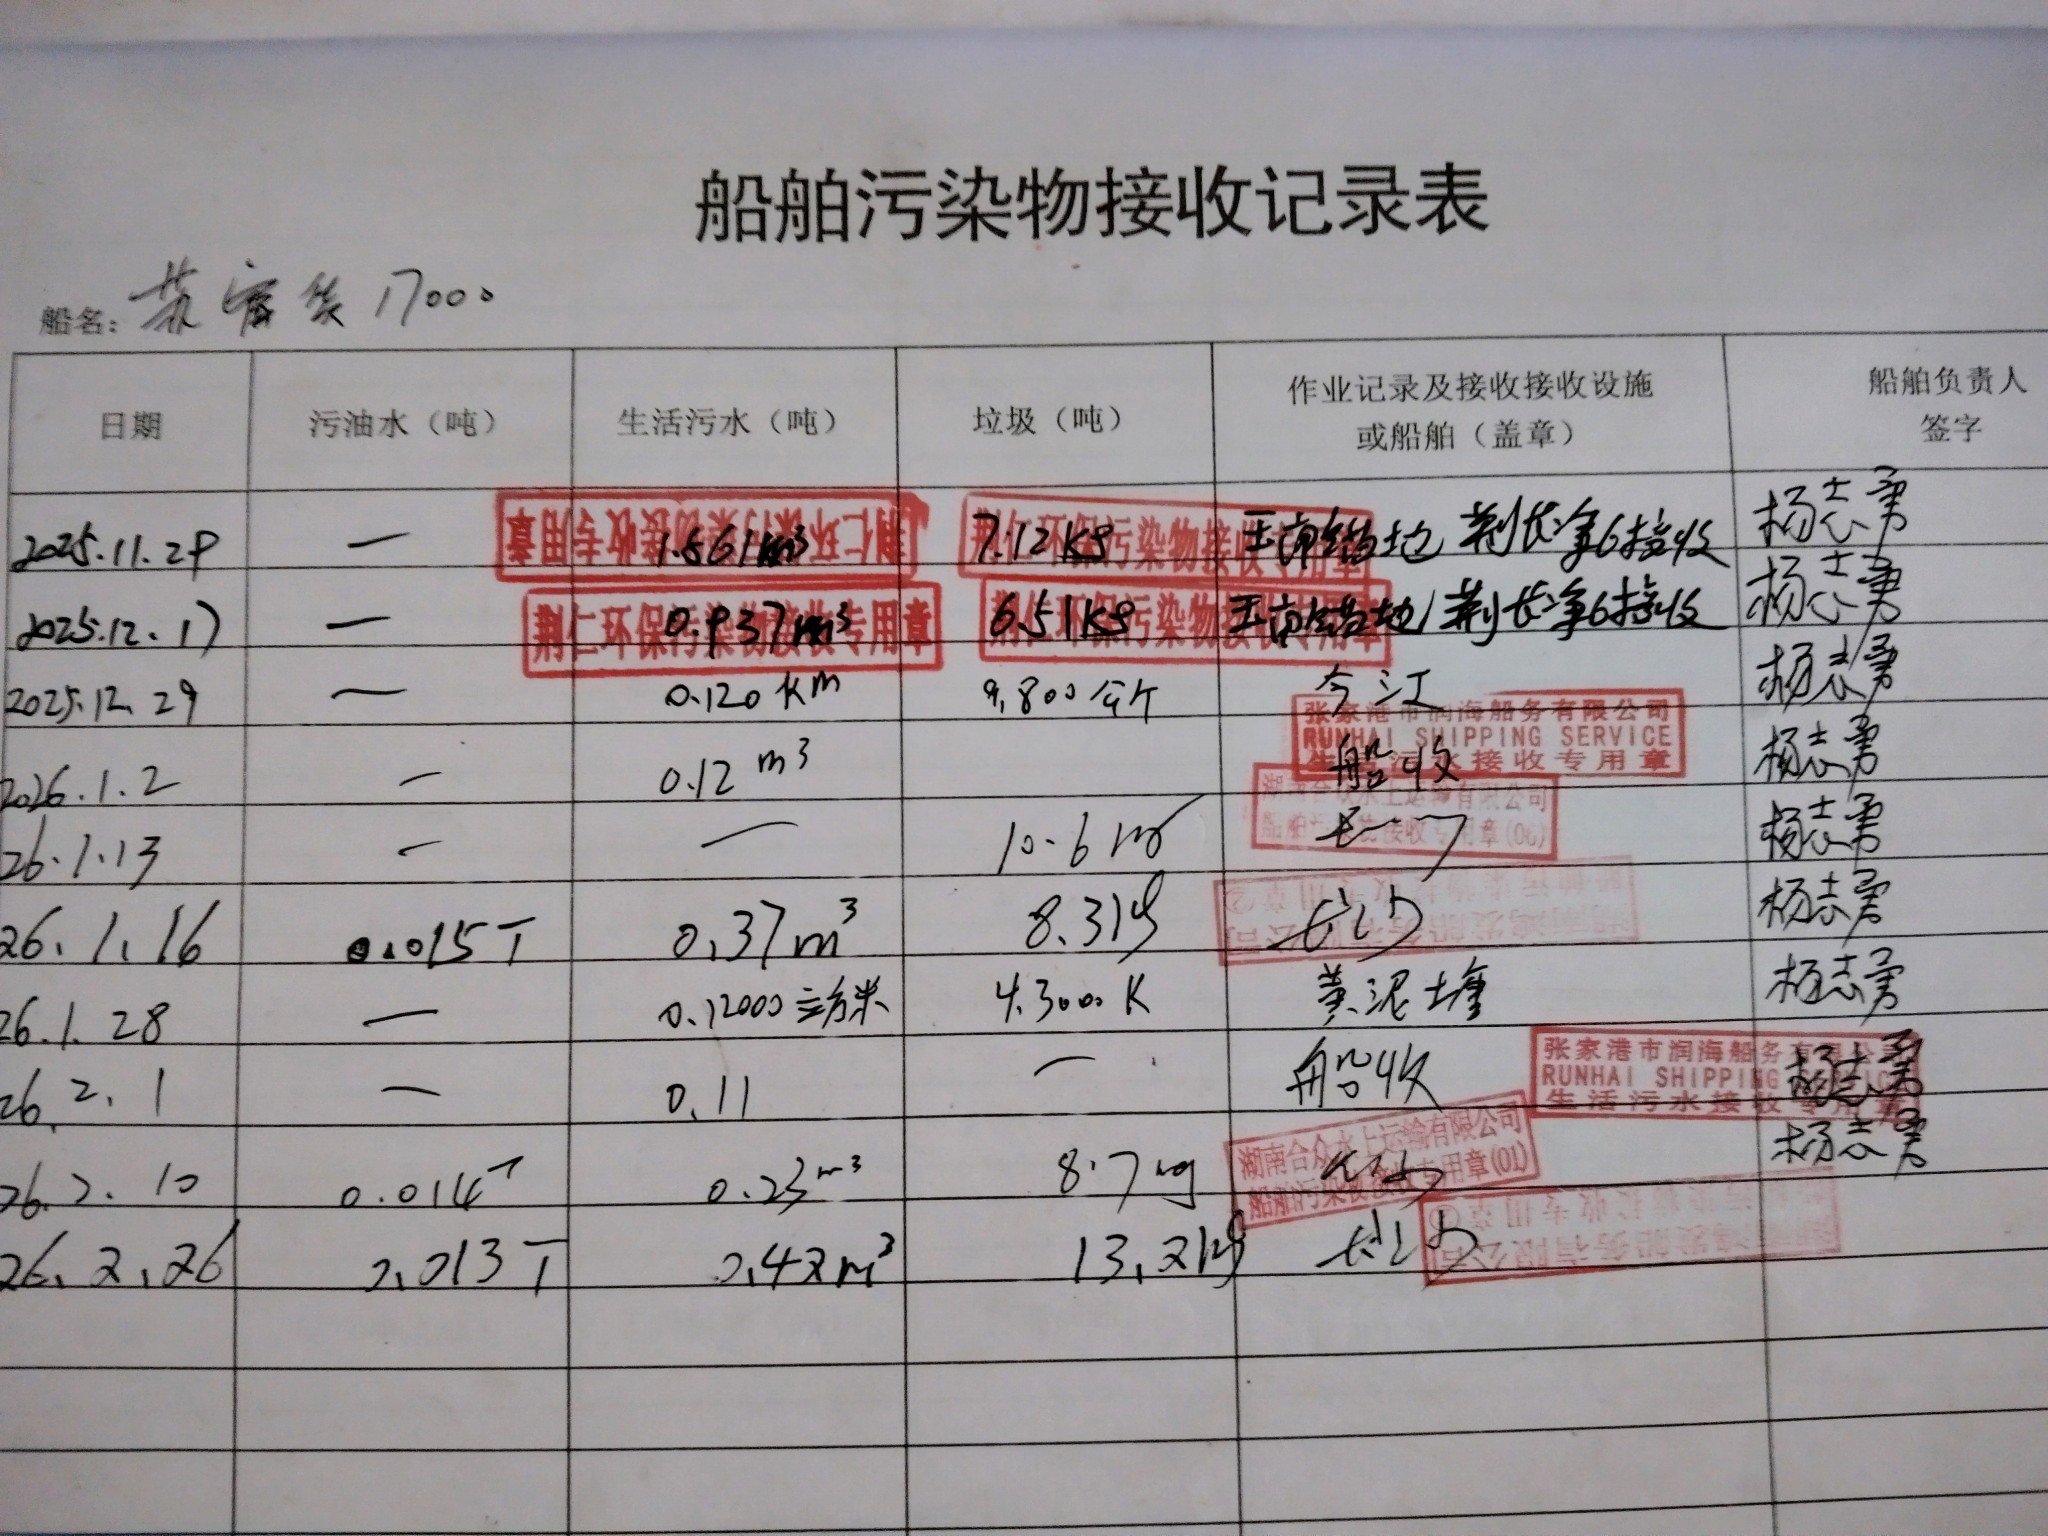 船舶污染物接收记录表
船名: 17000
日期 污油水（吨） 生活污水（吨） 垃圾（吨） 作业记录及接收接收设施 船舶负责人
或船舶（盖章） 签字
2025.11.29 — 1.561m³ 7.12kg 锚地 荆长净6接收 杨志勇
荆仁环保污染物接收专用章
荆仁环保污染物接收专用章
2025.12.17 — 0.937m³ 6.51kg 锚地 荆长净6接收 杨志勇
荆仁环保污染物接收专用章
荆仁环保污染物接收专用章
2025.12.29 — 0.120 Km 9,800公斤 杨志勇
张家港市润海船务有限公司
RUNHAI SHIPPING SERVICE
生活污水接收专用章
2026.1.2 — 0.12 m³ 船收 杨志勇
湖南合众水上运输有限公司
船舶污染物接收专用章(06)
26.1.13 — — 10.6 杨志勇
26.1.16 0.015T 0.37m³ 8.31kg 长沙 杨志勇
26.1.28 — 0.12000立方米 4.3000K 黄泥塘 杨志勇
26.2.1 — 0.11 — 船收 杨志勇
张家港市润海船务有限公司
RUNHAI SHIPPING SERVICE
生活污水接收专用章
湖南合众水上运输有限公司
船舶污染物接收专用章(01)
26.2.10 0.014T 0.23m³ 8.7 长沙 杨志勇
26.2.26 0.013T 0.42m³ 13.21kg 长沙